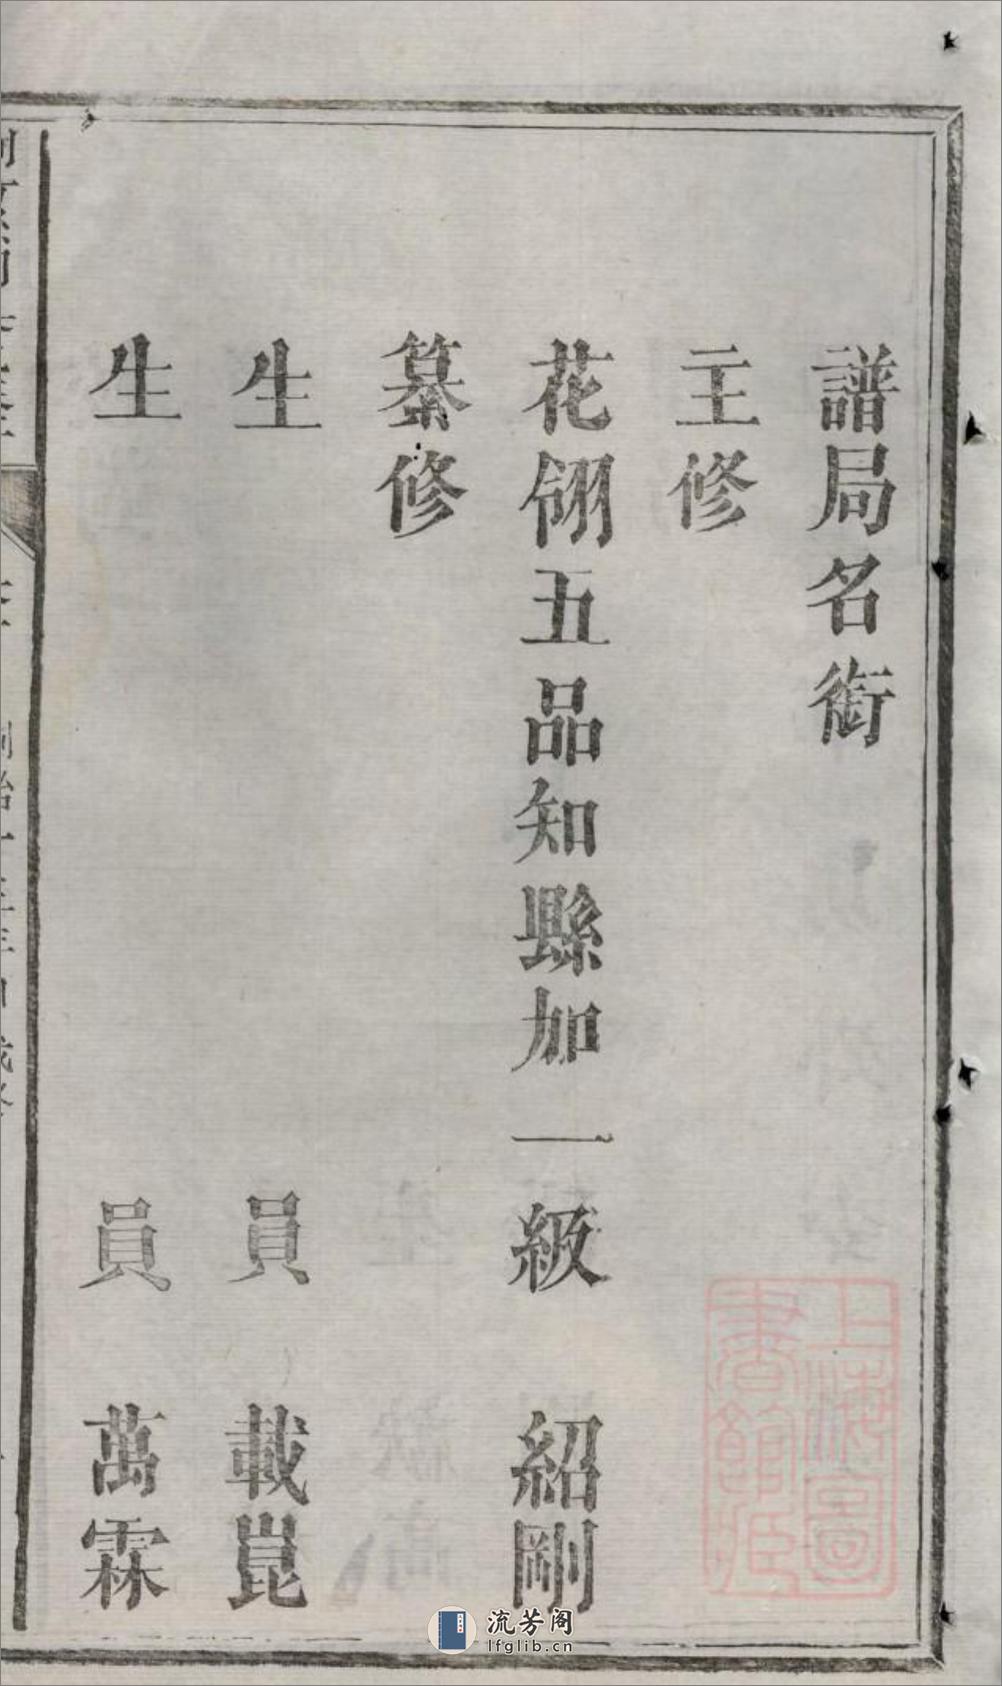 譜局名銜
主修
花翎五品知縣加一級 紹剛
纂修
生 員 載崑
生 員 萬霖
上海圖書館藏
流芳阁
lfglib.cn